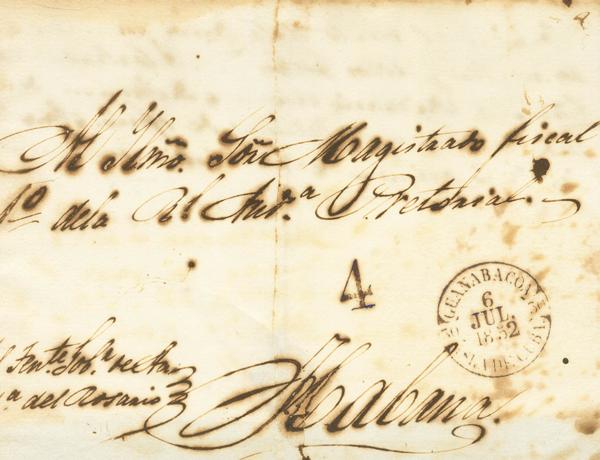 Al Ylmõ. Señ Magistrado fiscal
1º de la Rl Aud.ª Pretorial.
4
GUANABACOA
6
JUL.
1852
ISLA DE CUBA
del Rosario
Habana.